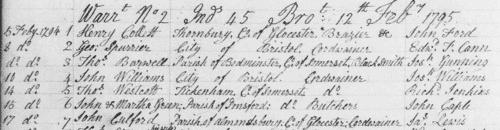 Warr.t No 2 Ind.s 45 Bro.t 12th Feb.y 1795
5 Feby. 1794 1 Henry Collett Thornbury, C.o of Glocester Brazier &c John Ford
8 do. 2 Geo. Spurrier City of Bristol. Cordwainer Edw.d T. Cann
do do. 3 Tho.s Barwell Parish of Bedminster, C.o of Somerset, Black Smith Jos.h Gunning
10 do. 4 John Williams City of Bristol. Cordwainer Jos.h Williams
14 do. 5 Tho.s Westcott Tickenham, C. of Somerset do. Rich.d Jenkins
15 do. 6 John & Martha Green; Parish of do. Butchers John Caple
17 do. 7 John Parish of Almondsbury, C. of Glocester; Cordwainer Jas. Lewis